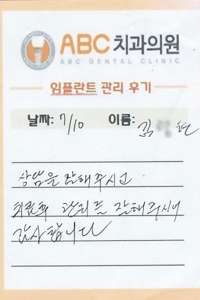 ABC치과의원
ABC DENTAL CLINIC
임플란트 관리 후기
날짜: 7/10 이름: 김
상담을 잘해주시고
치료와 관리를 잘해주셔서
감사합니다